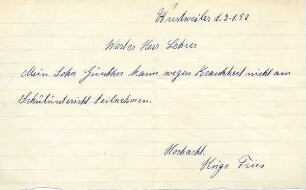 Urexweiler d. 2.1.50
Wertes Herr Lehrer
Mein Sohn Günther kann wegen Krankheit nicht am
Schulunterricht teilnehmen.
Hochacht.
Hugo Fries